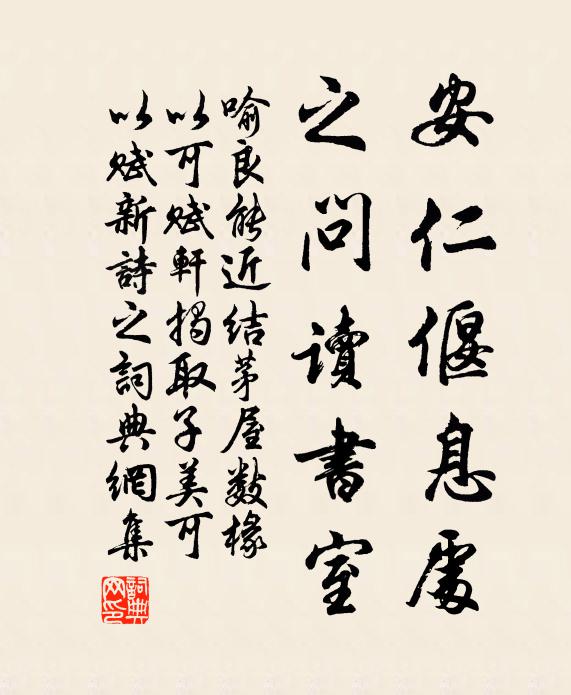 安仁偃息處
之問讀書室
喻良能近結茅屋數椽
以可賦軒揭取子美可
以賦新詩之詞典網集
詞典網印